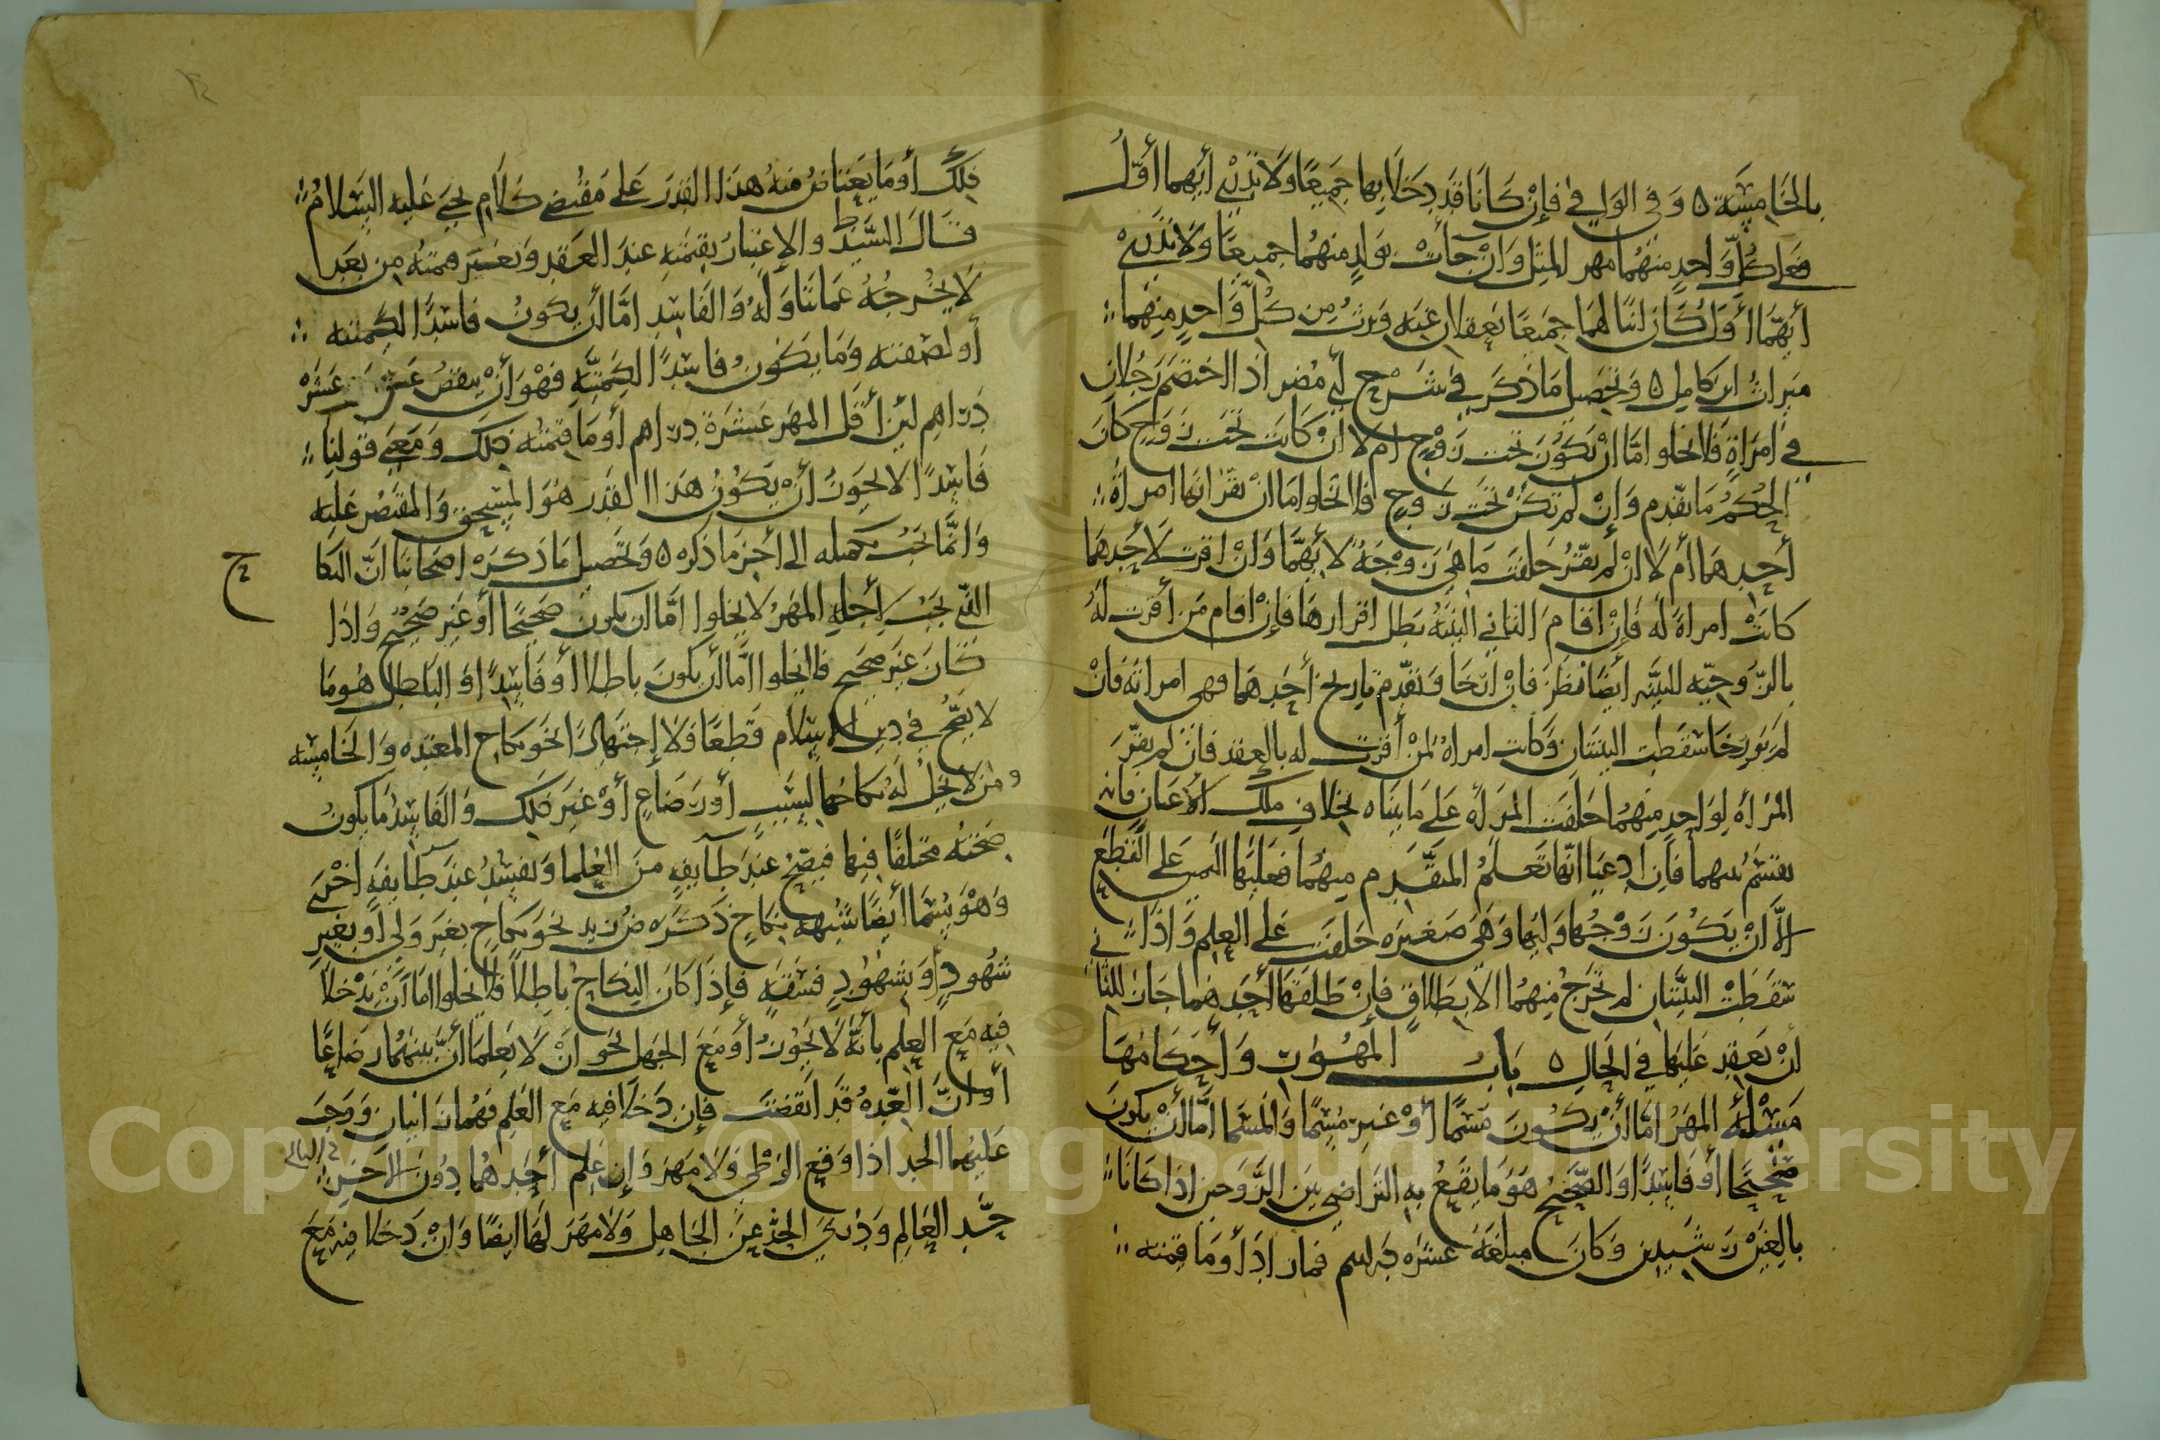 بالخامسة ٥ وفي الوافي فإن كانا قد دخلا بها جميعًا ولا ندري أيهما أول
فعلى كل واحدٍ منهما مهر المثل وان جأت بولدٍ منهما جميعًا ولا ندري
أيهما أول كان ابنًا لهما جميعًا يعقلان عنه ويرث من كل واحدٍ منهما
ميراث ابن كامل ٥ وتحصيل ما ذكر في شرح أبي مضر اذا اختصم رجلان
في امرأةٍ فلا يخلو امّا ان تكون تحت زوج ام لا ان كانت تحت زوج كان
الحكم ما تقدم وإن لم تكن تحت زوج فلا يخلوا اما ان تقر انها امرأة
أحدهما أم لا ان لم تقر حلفت ما هي زوجة لأيهما وان اقرت لأحدهما
كانت امرأة له فإن اقام الثاني البينة بطل اقرارها فإن اقام من أقرت له
بالزوجية البينة أيضًا نظر فان ارخا وتقدم تاريخ أحدهما فهي امراته فان
لم يورخا سقطت البينتان وكانت امراة لمن أقرت له بالعقد فان لم تقر
المرأة لواحدٍ منهما حلفت المرأة على ما بيناه بخلاف ملك الأعيان فانه
يقتسم بينهما فإن ادعيا انها تعلم المتقدم منهما فعليها اليمين على القطع
الا ان يكون زوجها وليها وهي صغيرة حلفت على العلم واذا
سقطت البينتان لم تخرج منهما الا بطلاقٍ فإن طلقها أحدهما جاز للثاني
أن يعقد عليها في الحال ٥ باب المهور وأحكامها
مسئلة المهر اما أن يكون مسمًا أو غير مسمًا والمسما امّا أن يكون
صحيحًا أو فاسدًا والصحيح هو ما يقع به التراضي بين الزوجين اذا كانا
بالغين رشيدين وكان مبلغه عشرة دراهم فما زاد أو ما قيمته
ذلك أو ما يعتاض منه هذا القدر على مقتضى كلام يحيى عليه السلام
قال السيد ط والإعتبار بقيمته عند العقد وتغير قيمته من بعد
لا يخرجه عما تناوله والفاسد امّا أن يكون فاسدًا لكميته
أو لصفته وما يكون فاسدًا لكميته فهو أن ينقص عن عشرة
دراهم لئن أقل المهر عشرة دراهم أو ما قيمته ذلك ومعنى قولنا
فاسدًا لا يجوز أن يكون هذا القدر هو المستحق والمقتصر عليه
وانما يجب تكميله الى أخر ما ذكره ٥ وتحصيل ما ذكره اصحابنا ان النكاح
الذي يجب لأجله المهر لا يخلوا امّا ان يكون صحيحًا أو غير صحيح واذا
كان غير صحيح فلا يخلوا امّا أن يكون باطلا أو فاسدًا والباطل هو ما
لا يصح في دين الإسلام قطعًا فلا إجتهادًا نحو نكاح المعتدة والخامسة
ومن لا يحل له نكاحها لنسب أو رضاعٍ أو غير ذلك والفاسد ما يكون
صحته مختلفًا فيها فيصح عند طآيفةٍ من العلما ويفسد عند طآيفة أخرى
وهو يسما أيضًا شبهة نكاح ذكره ض زيد نحو نكاح بغير ولي أو بغير
شهودٍ أو بشهودٍ فسقةٍ فإذا كان النكاح باطلًا فلا يخلوا اما أن يدخلا
فيه مع العلم بأنه لا يجوز أو مع الجهل نحو ان لا يعلما أن بينهما رضاعًا
أو ان العدة قد انقضت فإن دخلا فيه مع العلم فهما زانيان ووجب
عليهما الحد اذا وقع الوطي ولا مهر وإن علم أحدهما دون الأخر
حد العالم ودري الحد عن الجاهل ولا مهر لها ايضًا وان دخلا فيه مع